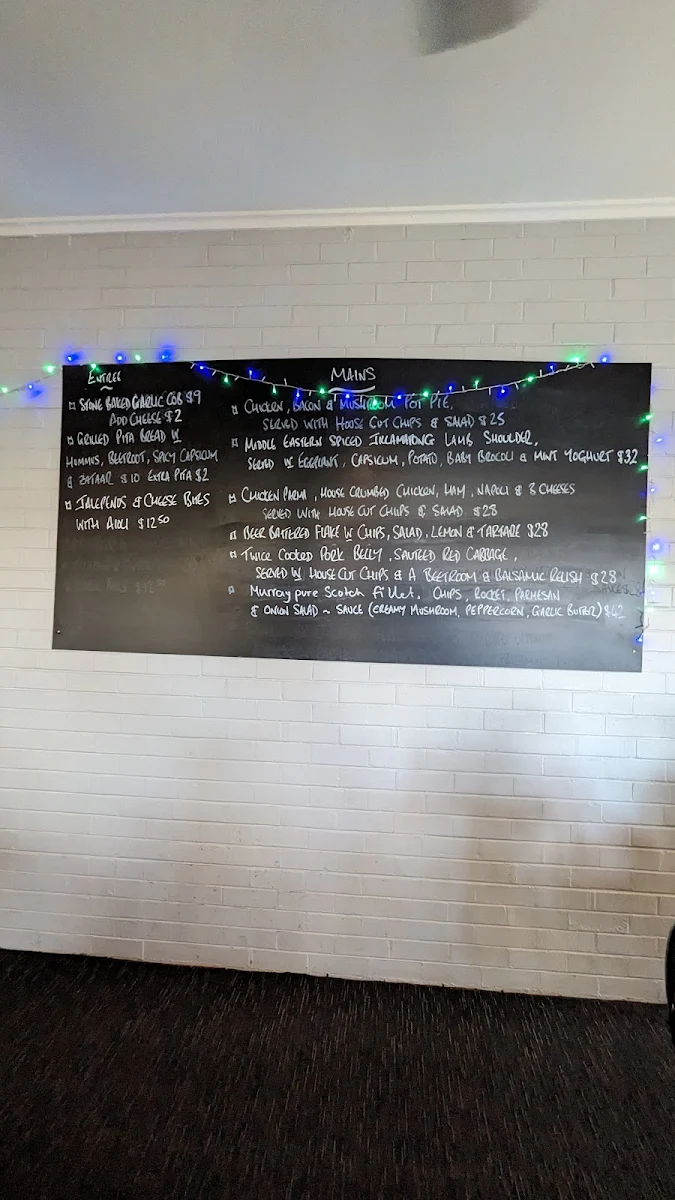 Entree
¤ Stone Baked Garlic Cob $9
Add Cheese $2
¤ Grilled Pita Bread W
Hummus, Beetroot, Spicy Capsicum
& Zataar $10 Extra Pita $2
¤ Jalepenos & Cheese Bites
with Aioli $12.50
Mains
¤ Chicken, Bacon & Mushroom Pot Pie,
Served with House Cut Chips & Salad $25
¤ Middle Eastern Spiced Lamb Shoulder,
Served W Eggplant, Capsicum, Potato, Baby Brocoli & Mint Yoghurt $32
¤ Chicken Parma, House Crumbed Chicken, Ham, Napoli & 3 Cheeses
Served with House Cut Chips & Salad $28
¤ Beer Battered Flake W Chips, Salad, Lemon & Tartare $28
¤ Twice Cooked Pork Belly, Sauteed Red Cabbage,
Served W House Cut Chips & A Beetroom & Balsamic Relish $28
¤ Murray pure Scotch fillet, Chips, Rocket, Parmesan
& Onion Salad ~ Sauce (Creamy Mushroom, Peppercorn, Garlic Butter) $42